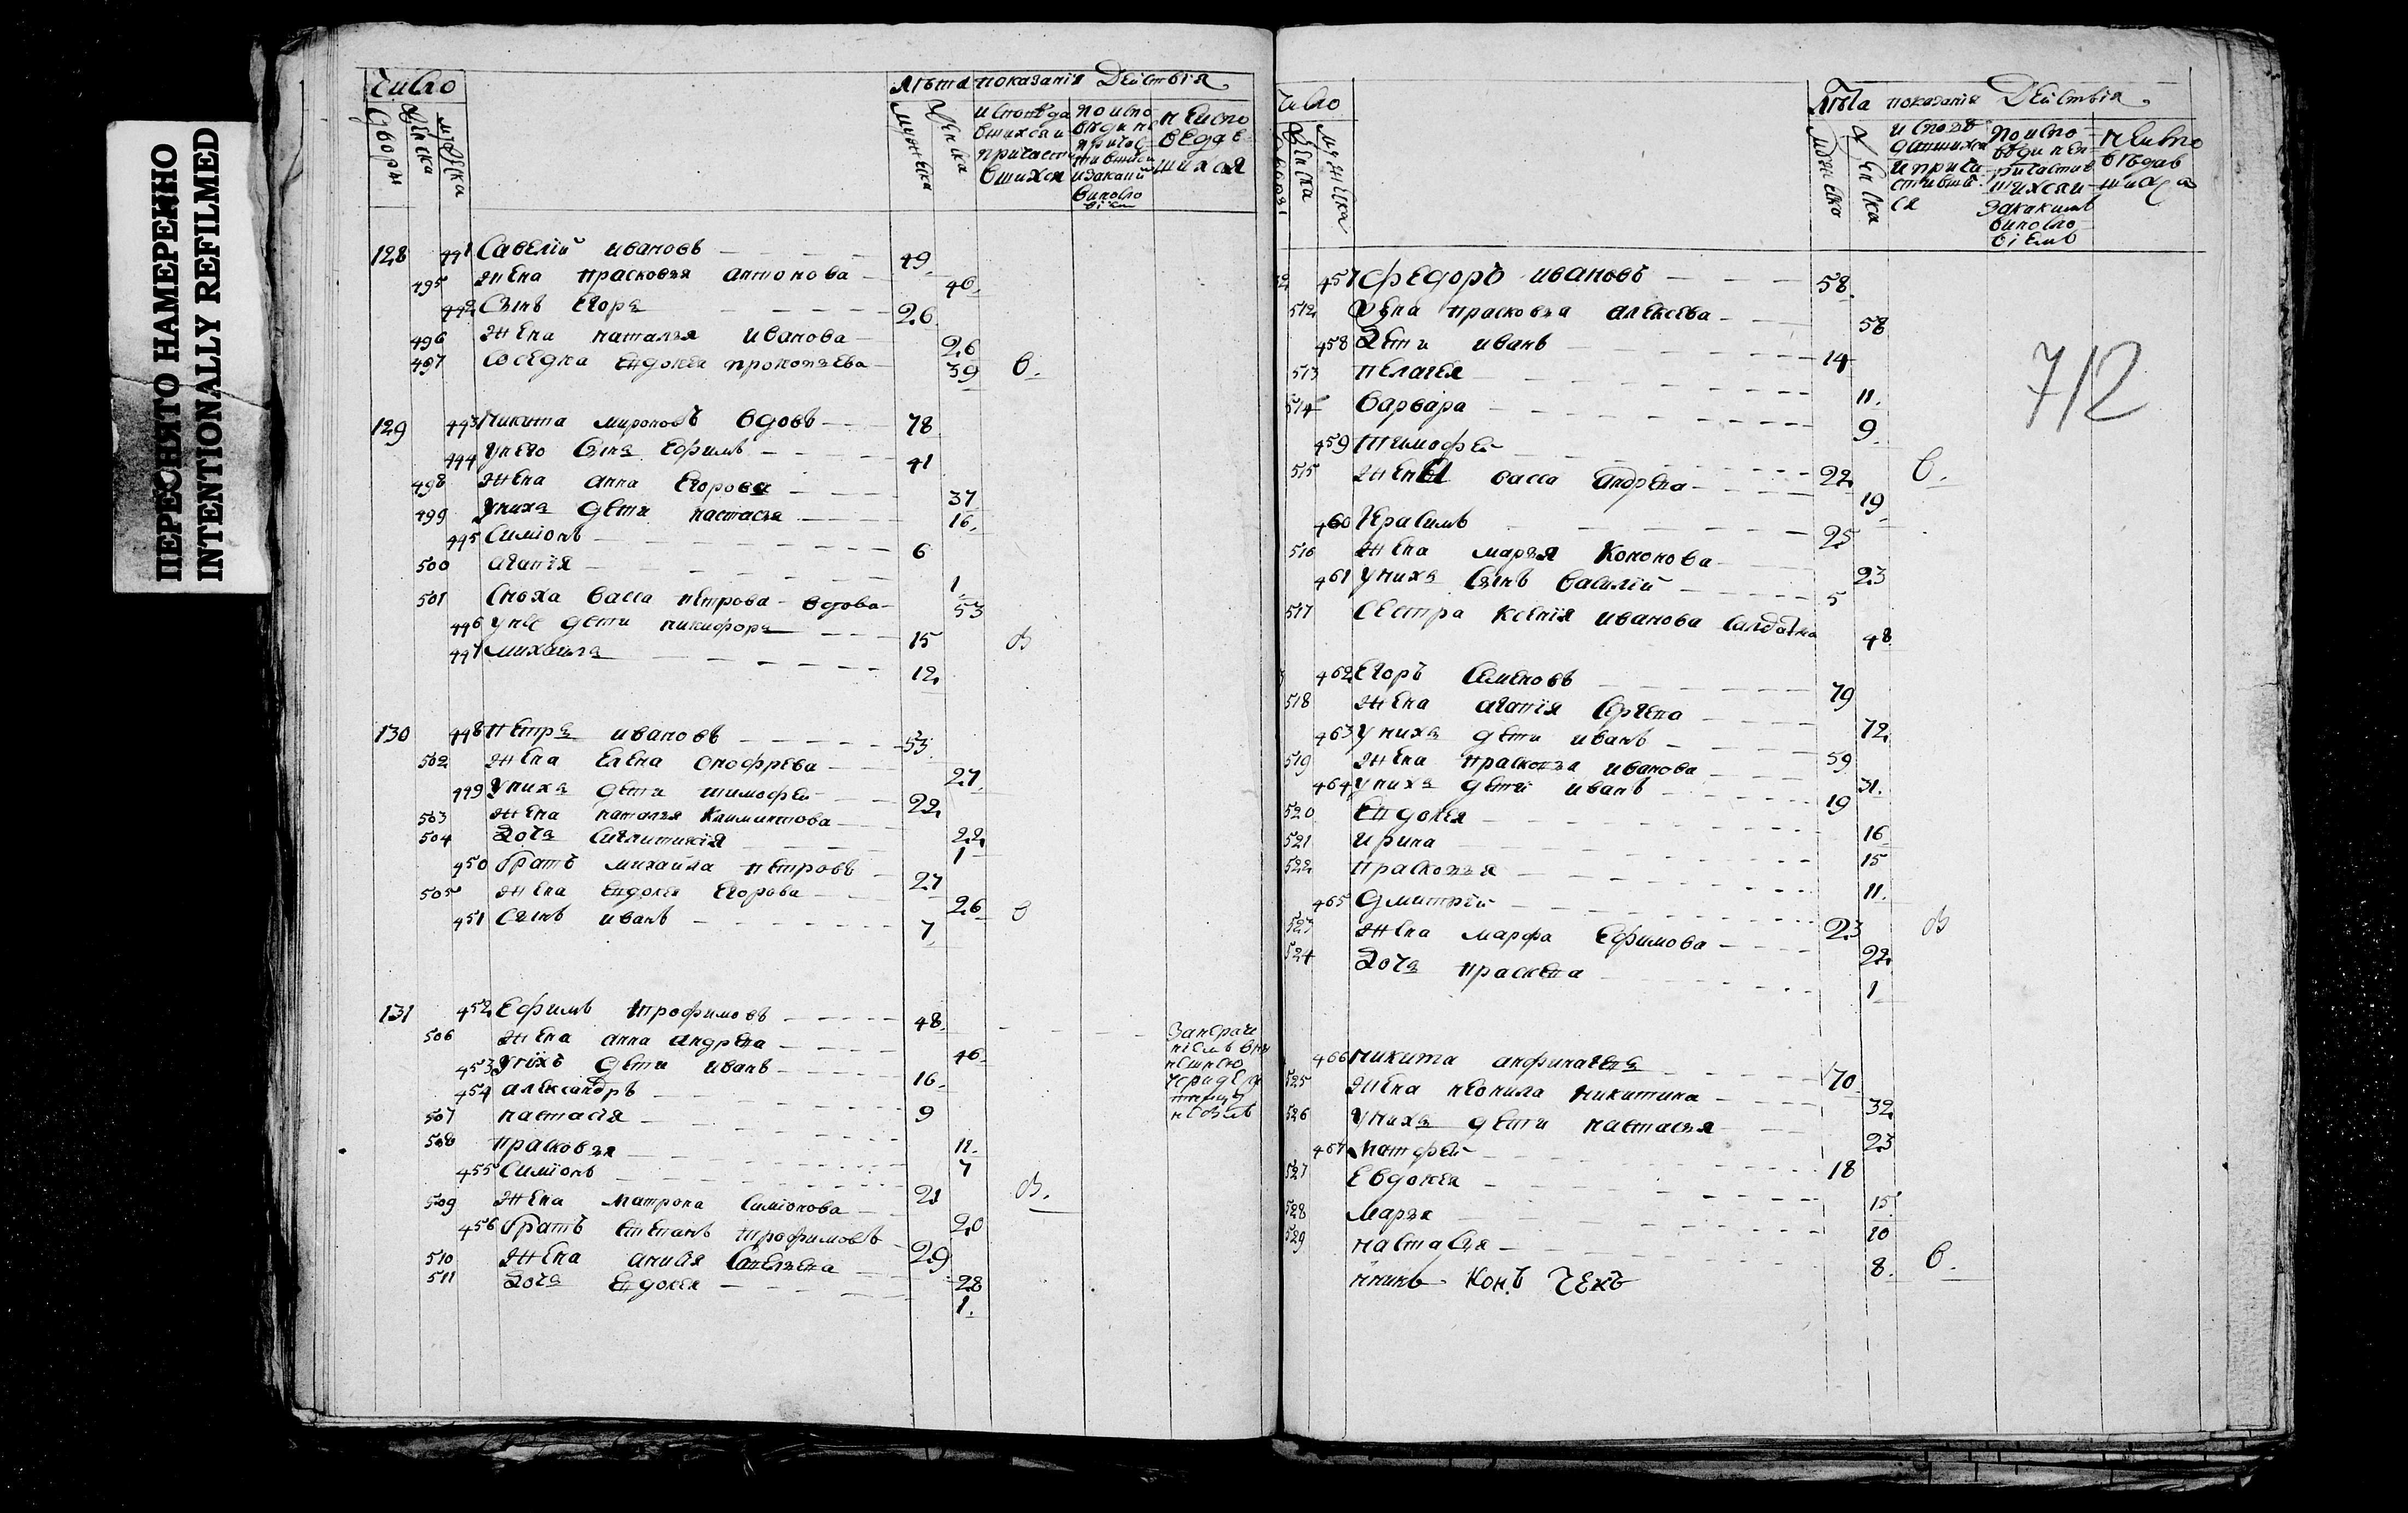 ПЕРЕСНЯТО НАМЕРЕННО
INTENTIONALLY REFILMED
Число
лѣта показанія Действія
дворы
женска
мужеска
мужеска
женска
128 441 Савелій ивановъ 49
495 жена прасковья антонова 46
442 Сынъ егоръ 26
496 жена наталья иванова 26
497 соседка евдокея прокопьева 39 в.
129 443 Никита мироновъ вдовъ 78
444 унего сынъ ефимъ 41
498 жена анна егорова 37
499 унихъ дети настасья 16
445 Симіонъ 6
500 агапія 1
501 Сноха васса петрова вдова 53
446 унее дети никифоръ 15 в
447 михайла 12
130 448 петръ ивановъ 53
502 жена елена онофрева 27
449 унихъ дети тимофей 22
503 жена наталья климантова 22
504 дочь 1
450 братъ михайла петровъ 27
505 жена евдокея егорова 26 в
451 сынъ иванъ 7
131 452 Ефимъ трофимовъ 48
506 жена анна андревна 46
453 унихъ дети иванъ 16
454 александръ 9
507 настасія 11
508 прасковья 7
455 Симіонъ 21
509 жена матрона симіонова 20 в.
456 братъ степанъ трофимовъ 29
510 жена анисья савельевна 28
511 дочь евдокея 1
число
лѣта показанія Действія
женска
мужеска
мужеско
женска
457 федоръ ивановъ 58
512 жена прасковья алексева 58
458 дети иванъ 14
712
513 пелагея 11
514 варвара 9
459 тимофей 22 в.
515 жены васса андревна 19
460 герасимъ 25
516 жена марья кононова 23
461 унихъ сынъ василій 5
517 сестра ксенія иванова салдатка 48
462 егоръ семеновъ 79
518 жена агапія сергевна 72
463 унихъ дети иванъ 59
519 жена прасковья иванова 31
464 унихъ дети иванъ 19
520 евдокея 16
521 ирина 15
522 прасковья 11
465 дмитрей 23 в
523 жена марфа ефимова 22
524 дочь 1
466 никита 70
525 жена неонила никитина 32
526 унихъ дети настасья 23
467 матфей 18
527 евдокея 15
528 марья 10
529 настасья 8 в.